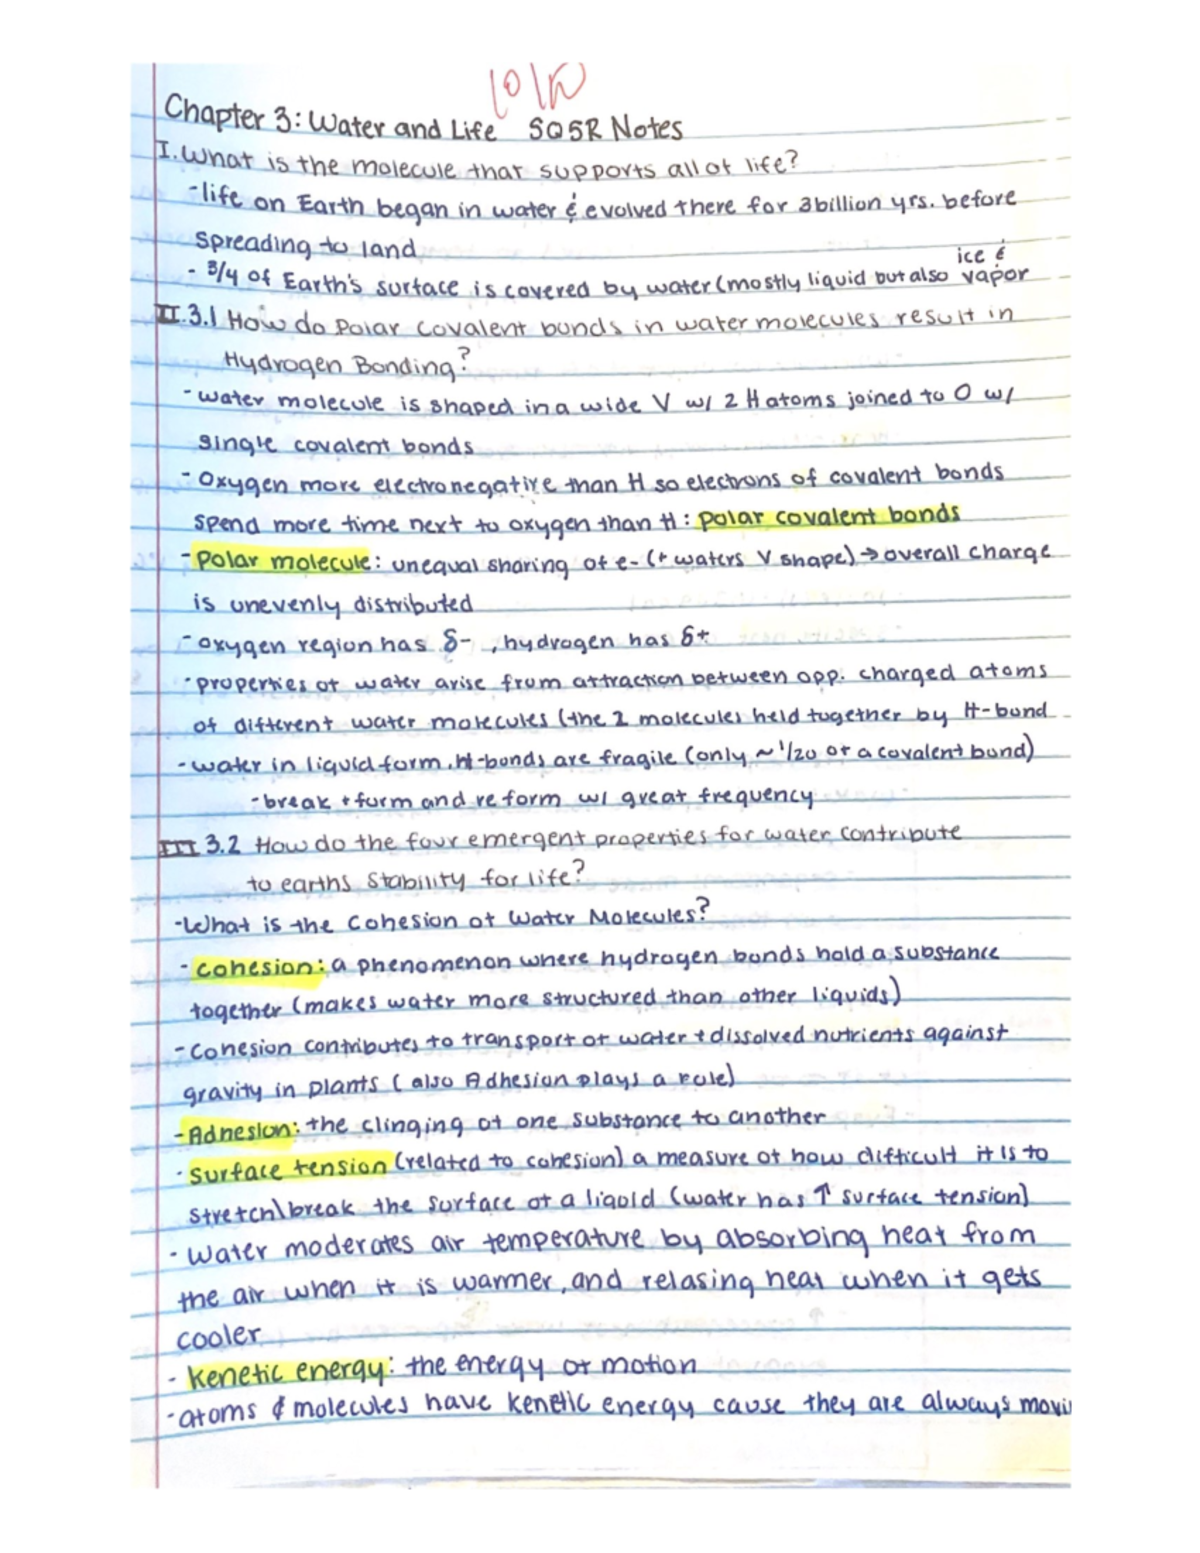 10/10
Chapter 3: Water and Life SQ5R Notes
I. What is the molecule that supports all of life?
- life on Earth began in water & evolved there for 3 billion yrs. before
spreading to land
ice &
- 3/4 of Earth's surface is covered by water (mostly liquid but also vapor
II. 3.1 How do Polar Covalent bonds in water molecules result in
Hydrogen Bonding?
- water molecule is shaped in a wide V w/ 2 H atoms joined to O w/
single covalent bonds
- Oxygen more electronegative than H so electrons of covalent bonds
spend more time next to oxygen than H: polar covalent bonds
- Polar molecule: unequal sharing of e- (+ waters V shape) → overall charge
is unevenly distributed
- oxygen region has δ- , hydrogen has δ+
- properties of water arise from attraction between opp. charged atoms
of different water molecules (the 2 molecules held together by H-bond
- water in liquid form, H-bonds are fragile (only ~ 1/20 of a covalent bond)
- break + form and reform w/ great frequency
III 3.2 How do the four emergent properties for water contribute
to earths Stability for life?
- What is the Cohesion of Water Molecules?
- cohesion: a phenomenon where hydrogen bonds hold a substance
together (makes water more structured than other liquids)
- Cohesion contributes to transport of water + dissolved nutrients against
gravity in plants ( also Adhesion plays a role)
- Adhesion: the clinging of one substance to another
- surface tension (related to cohesion) a measure of how difficult it is to
stretch\break the surface of a liquid (water has ↑ surface tension)
- Water moderates air temperature by absorbing heat from
the air when it is warmer, and relasing heat when it gets
cooler
- kenetic energy: the energy of motion
- atoms & molecules have kenetic energy cause they are always movi